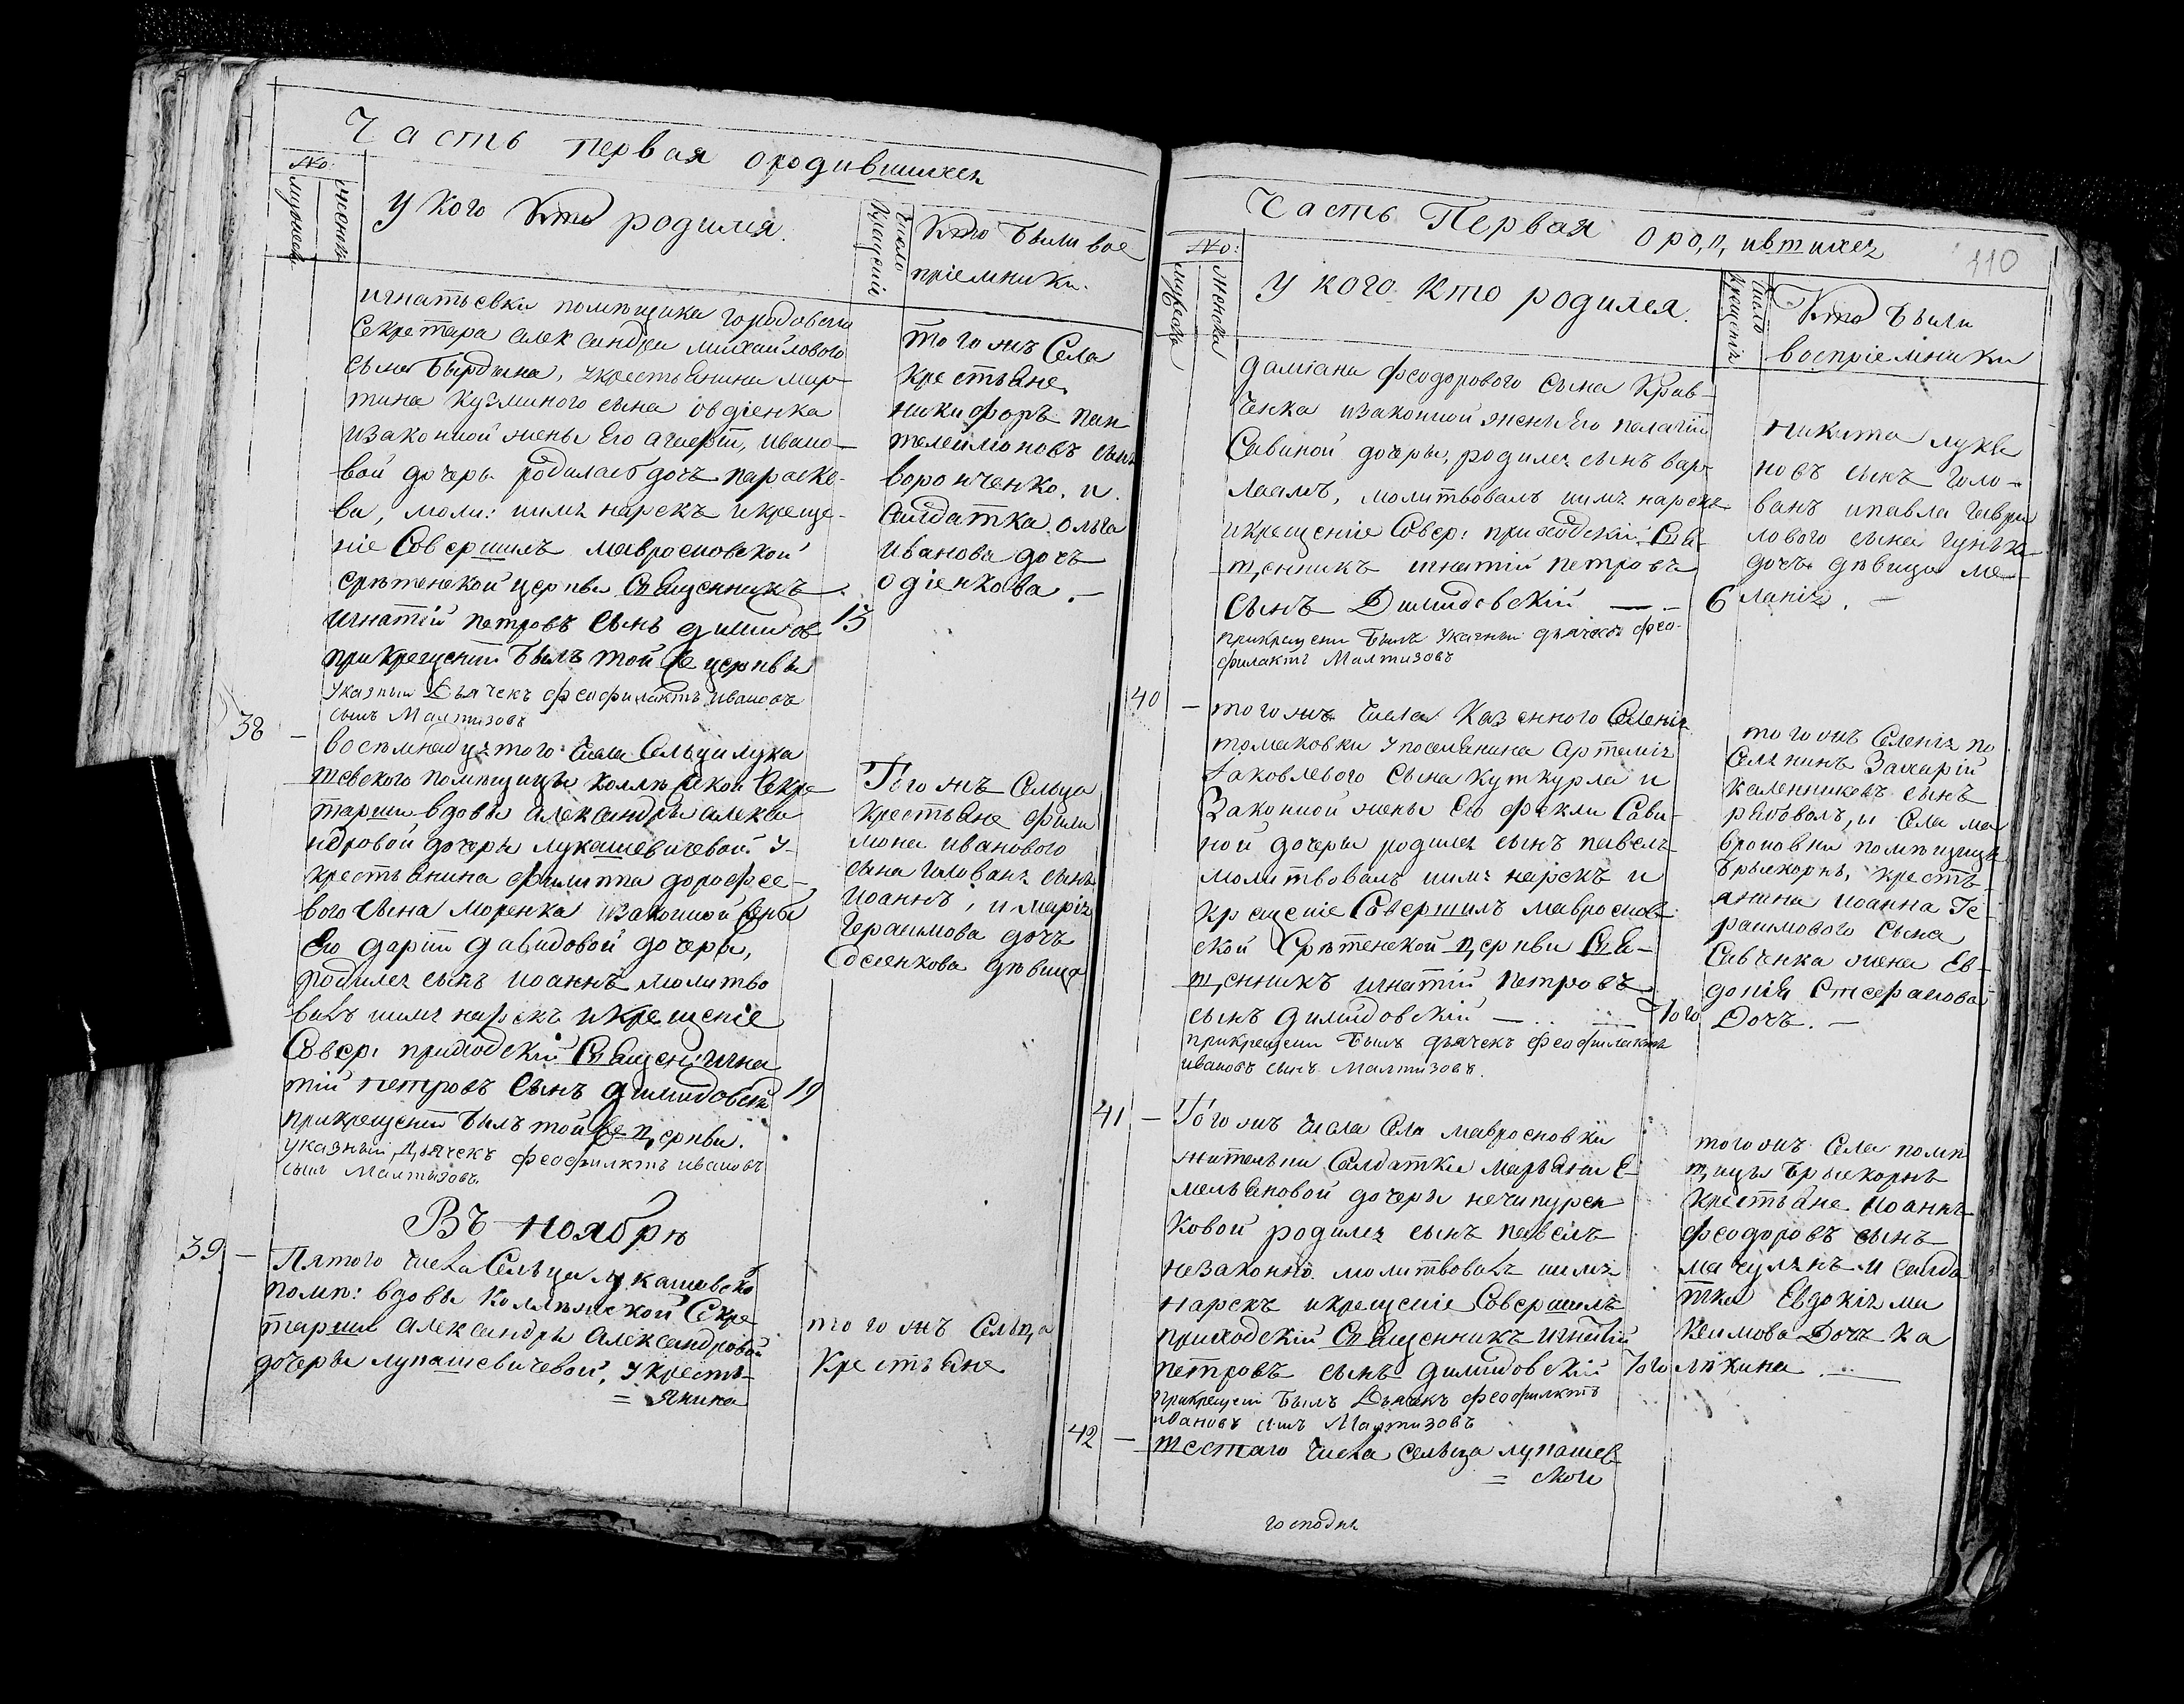 Часть первая ородившихся
No
мужеска
женска
У кого кто родился.
Число крещенія
Кто были вос
пріемники.
игнатьевки помѣщика городоваго
секретаря александра михайлового
сына бырдина, укрестьянина мар
тина кузминого сына овдіенка
изаконной жены Его агаѳіи, ивано-
вой дочеры родилась дочъ параске-
ва, моли: имя нарекъ икреще-
ніе Совершилъ мавросновской
срѣтенской церкви священникъ
игнатій петровъ Сынъ димидов 13
прикрещеніи былъ той же церквы
указный Дьячекъ феофилактъ ивановъ
сынъ Малтизовъ
того жъ Села
крестьяне
никифоръ пан
телеимоновъ сынъ
воронченко. и
салдатка ольга
иванова дочъ
одіенкова. —
38 — восѣмнадцятого числа Сельци лука
шевского помѣщицы коллѣжской секре
тарши вдовы александры алекса
ндровой дочеры лукашевичевой у
крестьянина филиппа дорофее-
вого сына моренка изаконной жены
Его даріи давидовой дочеры,
родился сынъ иоаннъ молитво
валъ имя нарекъ икрещеніе
Совер: приходскій Священ: игна
тій петровъ сынъ димидовскі 19
прикрещеніи былъ той же церкви.
указный Дьячекъ феофилктъ ивановъ
сынъ Малтизовъ
Того жъ Сельца
крестьяне фили
мона иванового
сына голованя сынъ
иоаннъ, и марія
герасимова дочъ
дѣвица
Въ ноябрѣ
39 — Пятого числа Сельца лукашевско
помѣ: вдовы Коллѣжской Секре
тарши александры александровой
дочеры лукашевичевой, укресть-
= янина
того жъ Сельца
крестьяне
Часть Первая ород,ившихся
110
No:
мужеска
женска
У кого кто родился.
Число крещенія
Кто были
воспріемники
даміана феодорового сына Крав-
ченка изаконной жены Его палагіи
Савиной дочеры, родился сынъ вар-
лаамъ, молитвовалъ имя нарекъ
икрещеніе Совер: приходскій Свя-
щ,енникъ игнатій петровъ
сынъ Димидовскій — - 6
прикрещеніи былъ указный дьячекъ фео-
филактъ Малтизовъ
никита лукя
новъ сынъ голо-
ванъ ипавла гаври
лового сына
дочъ дѣвица ме-
ланія. —
40 — того жъ числа Казенного Селенія
томаковки упоселянина Артемія
Іаковлевого Сына куткурла и
Законной жены Его феклы Сави-
ной дочеры родился сынъ павелъ
молитвовалъ имя нарекъ и
крещеніе Совершилъ мавроснов-
ской Срѣтенской ц,еркви Свя-
щ,енникъ игнатій петровъ
сынъ димидовскій — того
прикрещеніи былъ дьячекъ феофилактъ
ивановъ сынъ Малтизовъ.
того жъ Селенія по
селянинъ Захарій
каленниковъ сынъ
рябоволъ, и Села ма
помѣщицы
крестъ-
янина иоанна Ге-
расимового сына
Савченка жена Ев-
докія
Дочъ. —
41 — Того жъ числа Села мавросновки
жительки Салдатки марьяны Е-
мельяновой дочеры нечипурен
ковой родился сынъ павелъ
незаконно. молитвовалъ имя
нарекъ икрещеніе Совершилъ
приходскій Священникъ игнатій
петровъ сынъ димидовскій того
прикрещеніи былъ Дьячекъ феофилктъ
ивановъ сынъ Малтизовъ
того жъ Села помѣ
щ,ицы
крестьяне иоаннъ
феодоровъ сынъ
мачулянъ и салда
тка Евдокія ма
ксимова Дочъ ка
лѣкина
42 — шестаго числа сельца лукашев
= ской
господня